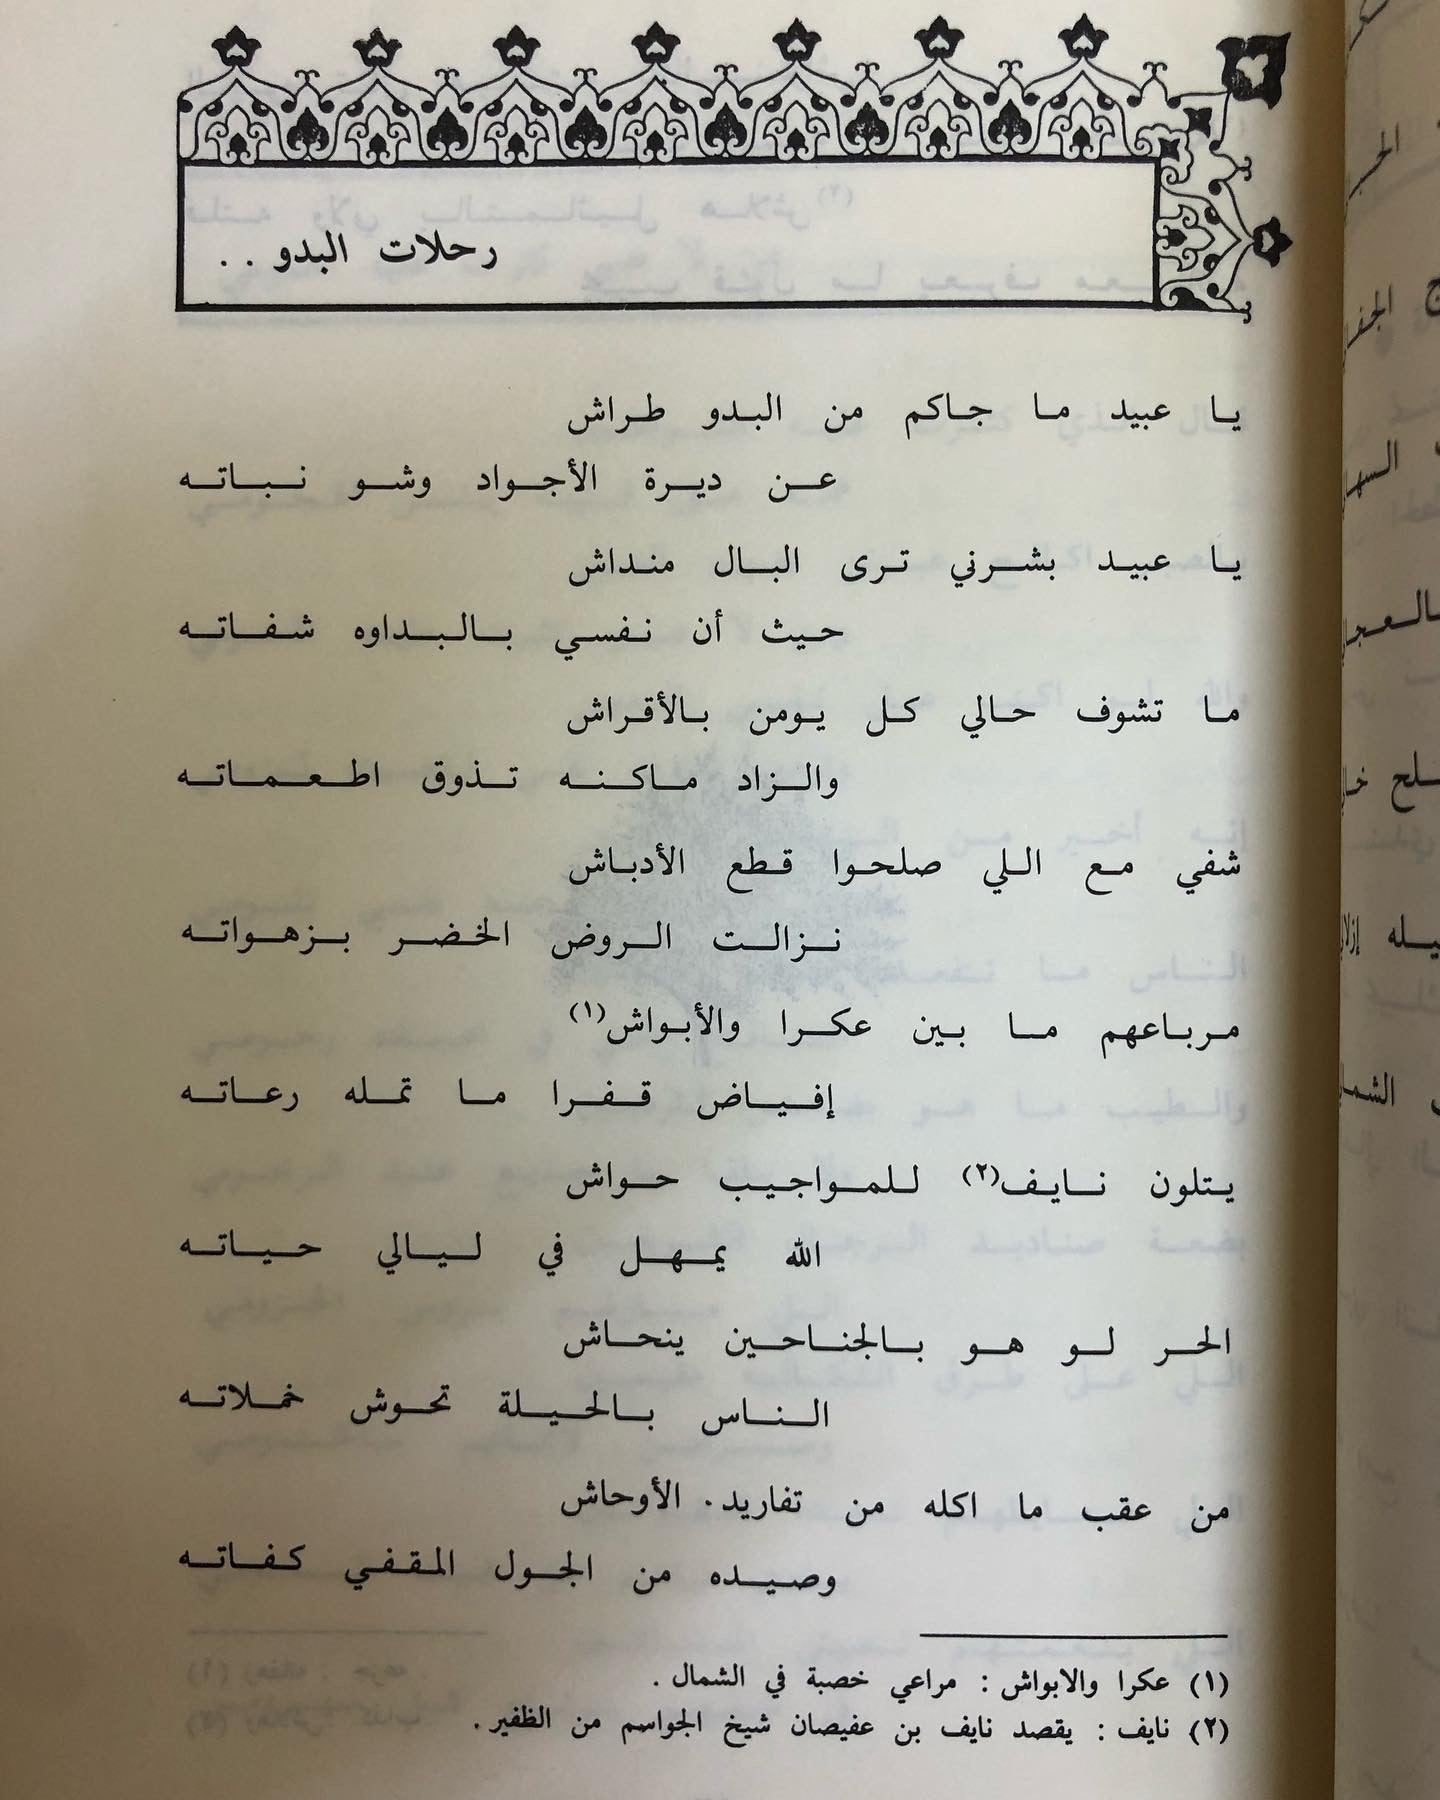 رحلات البدو . .
يا عبيد ما جاكم من البدو طراش
عن ديرة الأجواد وشو نباته
يا عبيد بشرني ترى البال منداش
حيث أن نفسي بالبداوه شفاته
ما تشوف حالي كل يومن بالأقراش
والزاد ماكنه تذوق اطعماته
شفي مع اللي صلحوا قطع الأدباش
نزالت الروض الخضر بزهواته
مرباعهم ما بين عكرا والأبواش(١)
إفياض قفرا ما تمله رعاته
يتلون نايف(٢) للمواجيب حواش
الله يمهل في ليالي حياته
الحر لو هو بالجناحين ينحاش
الناس بالحيلة تحوش خملاته
من عقب ما اكله من تفاريد . الأوحاش
وصيده من الجول المقفي كفاته
(١) عكرا والابواش : مراعي خصبة في الشمال .
(٢) نايف : يقصد نايف بن عفيصان شيخ الجواسم من الظفير .